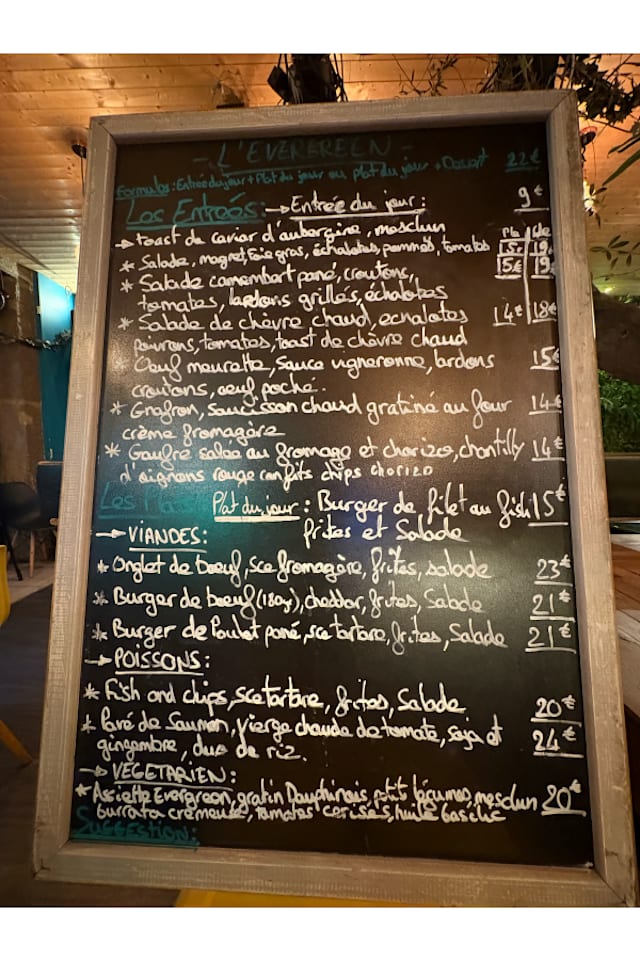 - L'EVERGREEN -
Formules: Entrée du jour + Plat du jour ou plat du jour + Dessert 22€
Les Entrées: → Entrée du jour: 9€
→ toast de caviar d'aubergine, mesclun
* Salade, magret, foie gras, échalotes, pommes, tomates 15€ 19
* Salade camembert pané, croutons, 15€ 19
tomates, lardons grillés, échalotes
* Salade de chèvre chaud, echalotes 14€ 18€
poivrons, tomates, toast de chèvre chaud
Oeuf meurette, sauce vigneronne, lardons 15€
croutons, oeuf poché.
* Gnafron, saucisson chaud gratiné au four 14€
crème fromagère
* Gaufre salée au fromage et chorizo, chantilly 14€
d'oignons rouge confits chips chorizo
Les Plats Plat du jour: Burger de filet au fish 15€
frites et Salade
→ VIANDES:
* Onglet de boeuf, sce fromagère, frites, salade 23€
* Burger de boeuf (180gr), cheddar, frites, Salade 21€
* Burger de Poulet pané, sce tartare, frites, Salade 21€
→ POISSONS:
* Fish and chips, sce tartare, frites, Salade 20€
* Pavé de Saumon, vierge chaude de tomate, soja et 24€
gingembre, duo de riz.
→ VÉGÉTARIEN:
* Assiette Evergreen, gratin Dauphinois, petit légumes, mesclun 20€
burrata crémeuse, tomates cerises, huile basilic
SUGGESTION: